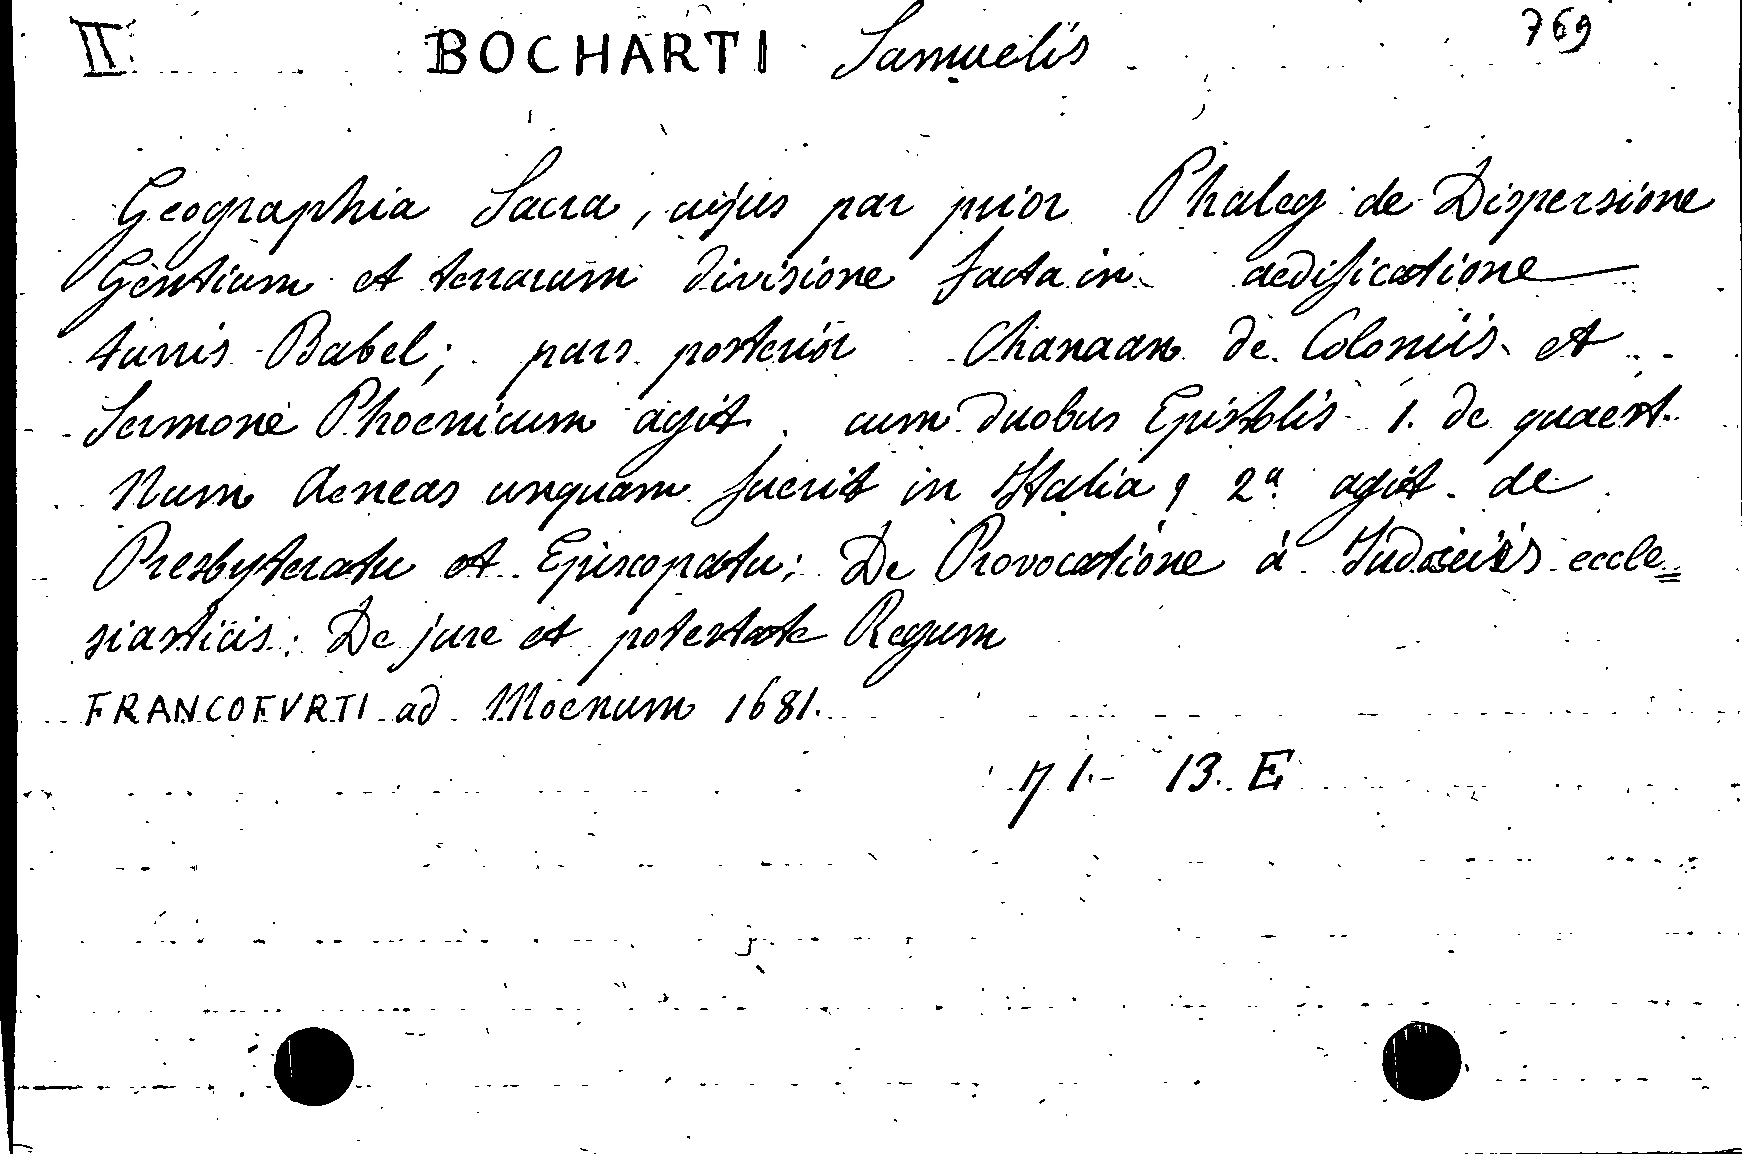 II BOCHARTI Samuelis 769
Geographia Sacra, cujus par prior Phaleg de Dispersione
Gentium et terrarum divisione facta in aedificatione
turris Babel; pars posterior Chanaan de Coloniis et
Sermone Phoenicum agit cum duobus Epistolis 1. de quaest.
Num Aeneas unquam fuerit in Italia, 2a agit de
Presbyteratu et Episcopatu; De Provocatione à Judiciis eccle=
siasticis: De jure et potestate Regum
FRANCOFVRTI ad Moenum 1681.
71- 13. E